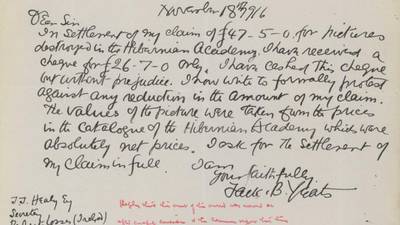 November 18th 1916
Dear Sir
In Settlement of my claim of £47-5-0. for pictures
destroyed in the Hibernian Academy. I have received a
cheque for £26-7-0 only, I have cashed this cheque
but without prejudice. I now write to formally protest
against any reduction in the amount of my claim.
The values of the picture were taken from the prices
in the catalogue of the Hibernian Academy which were
absolutely net prices. I ask for the Settlement of
my claim in full.
I am
Yours faithfully.
Jack. B. Yeats
J.J. Healy Esq
Secretary
Losses (Ireland)